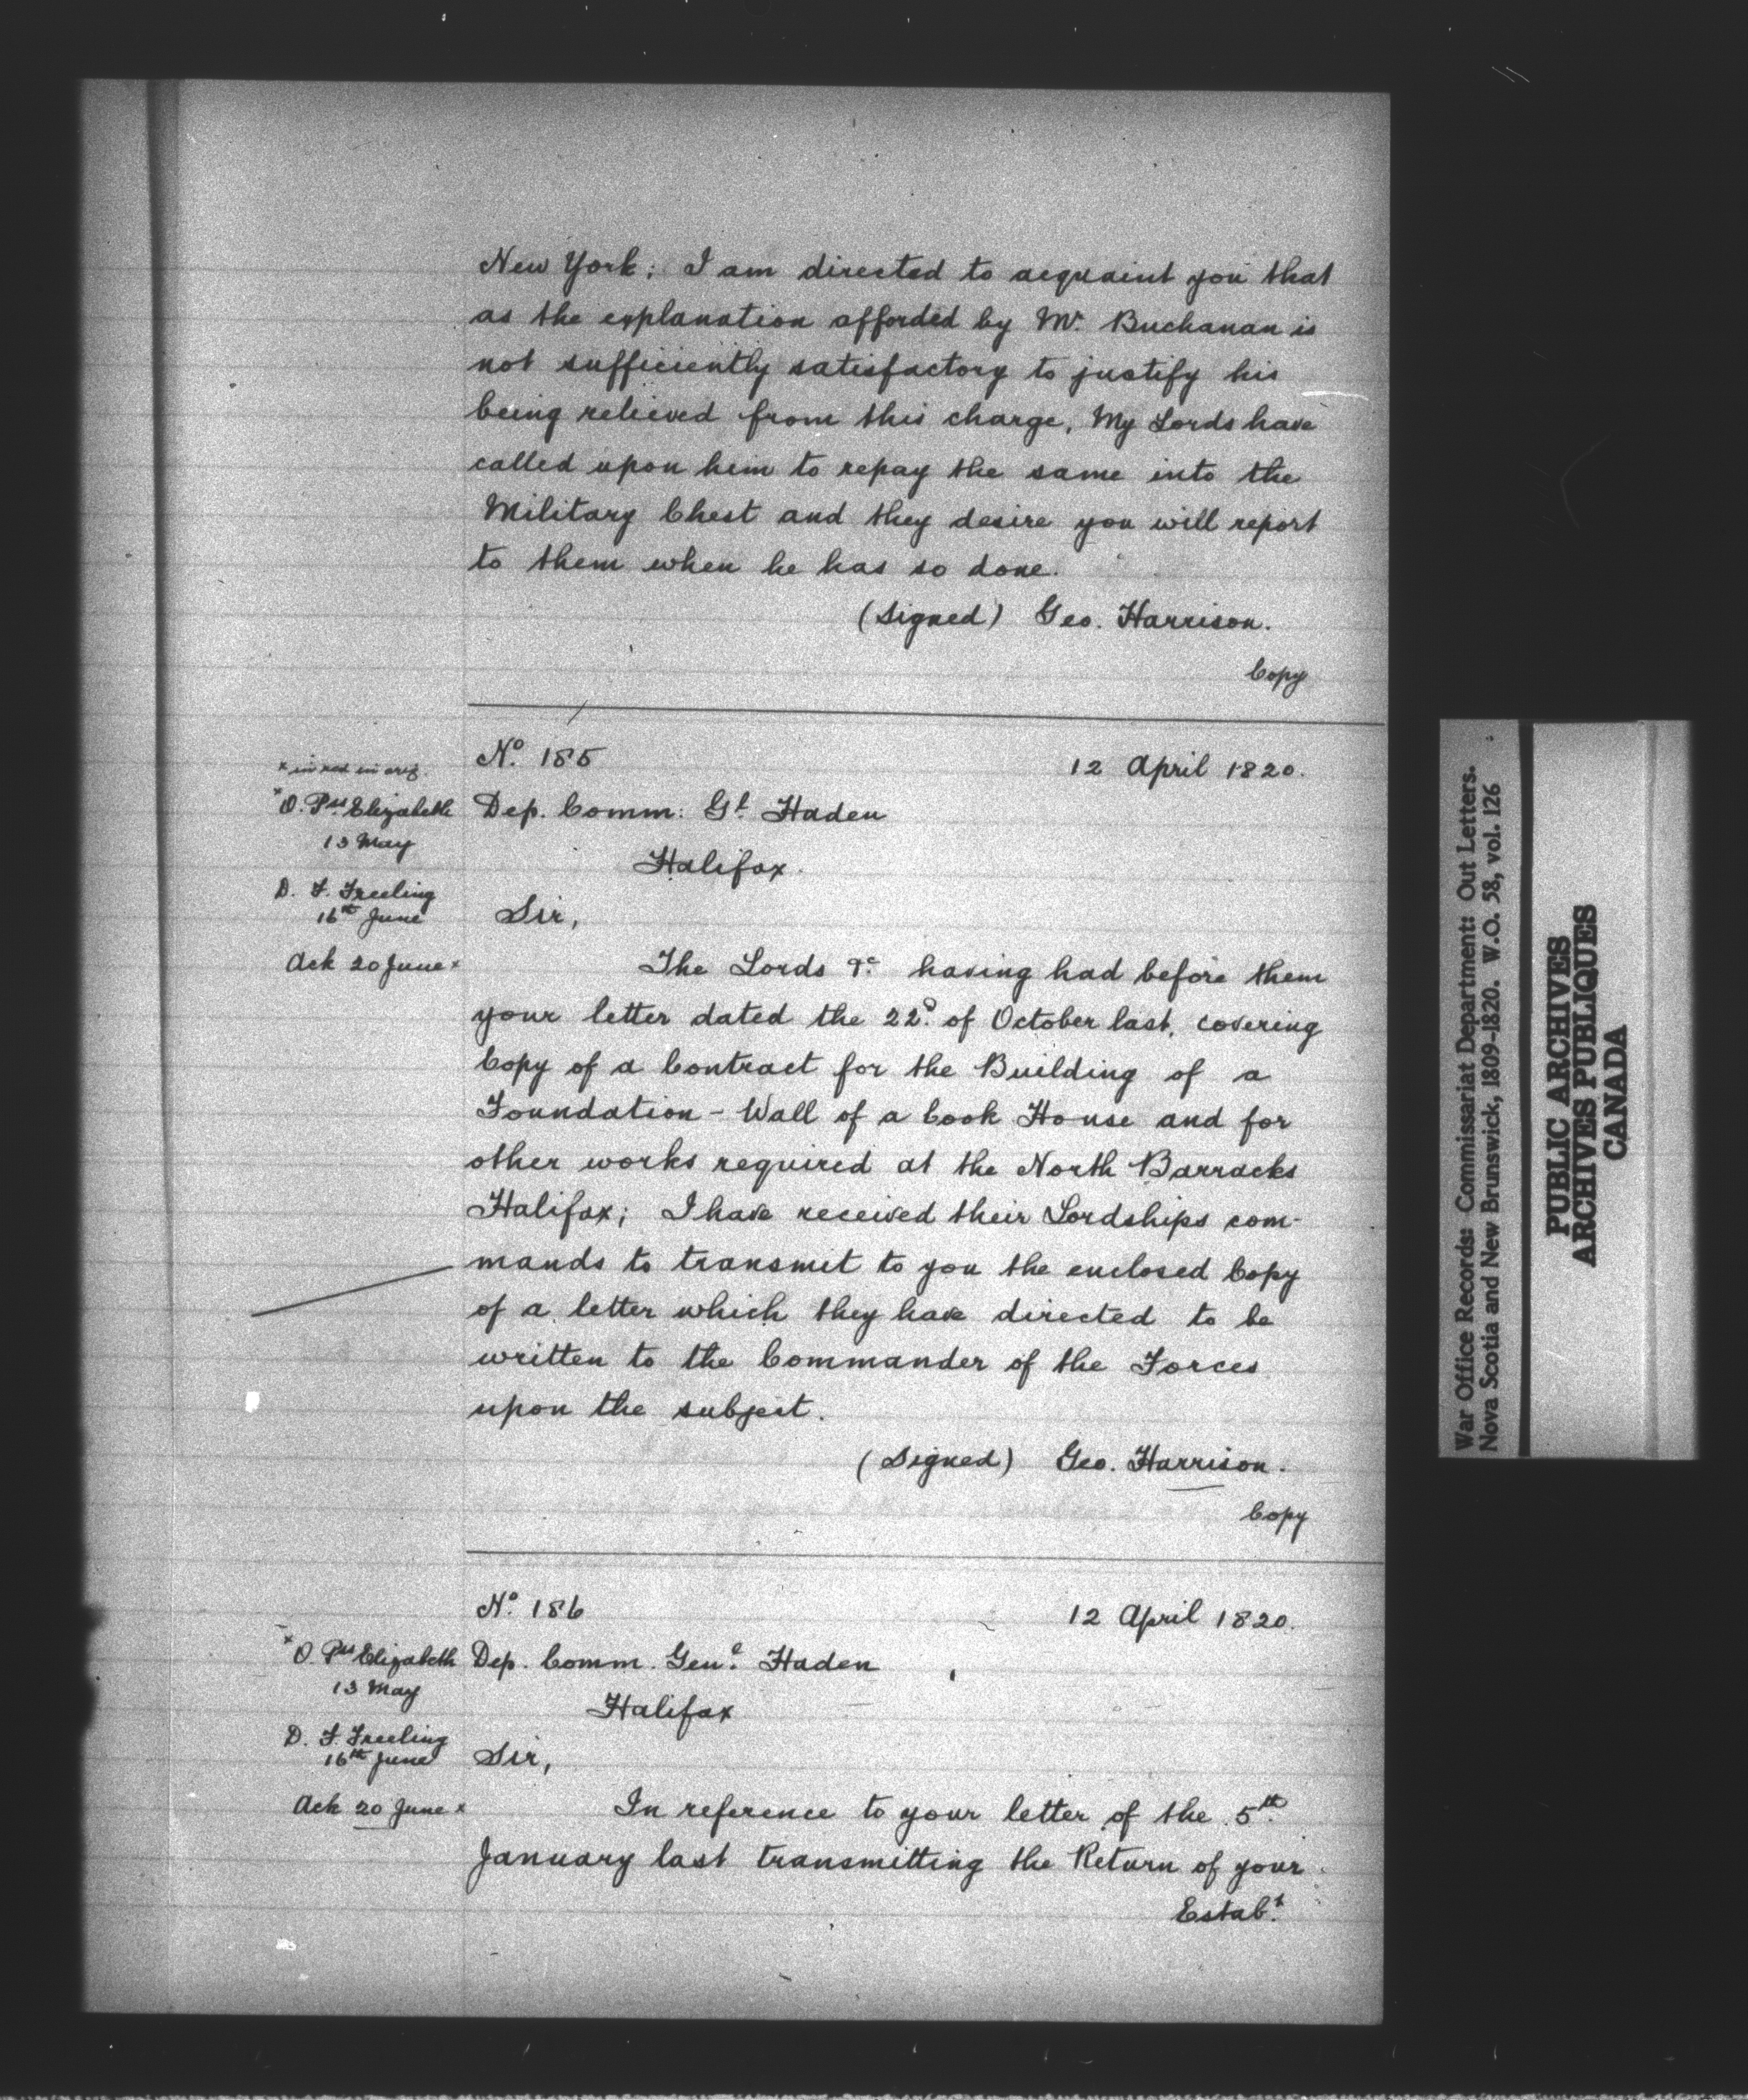 New York; I am directed to acquaint you that
as the explanation afforded by Mr. Buchanan is
not sufficiently satisfactory to justify his
being relieved from this charge, My Lords have
called upon him to repay the same into the
Military Chest and they desire you will report
to them when he has so done.
(Signed) Geo. Harrison.
Copy
No. 185
12 April 1820.
x in red in orig.
x O. Pss Elizabeth
13 May
D. F. Freeling
16th June
Ack 20 June x
Dep. Comm: Gl. Haden
Halifax.
Sir,
The Lords &c. having had before them
your letter dated the 22d. of October last, covering
Copy of a Contract for the Building of a
Foundation - Wall of a Cook House and for
other works required at the North Barracks
Halifax; I have received their Lordships com-
mands to transmit to you the enclosed Copy
of a letter which they have directed to be
written to the Commander of the Forces
upon the subject.
(Signed) Geo. Harrison.
Copy
No. 186
12 April 1820.
x O. Pss Elizabeth
13 May
D. F. Freeling
16th June
Ack 20 June x
Dep. Comm. Genl. Haden
Halifax
Sir,
In reference to your letter of the 5th.
January last transmitting the Return of your
Estabt.
War Office Records: Commissariat Department: Out Letters.
Nova Scotia and New Brunswick, 1809-1820. W.O. 58, vol. 126
PUBLIC ARCHIVES
ARCHIVES PUBLIQUES
CANADA